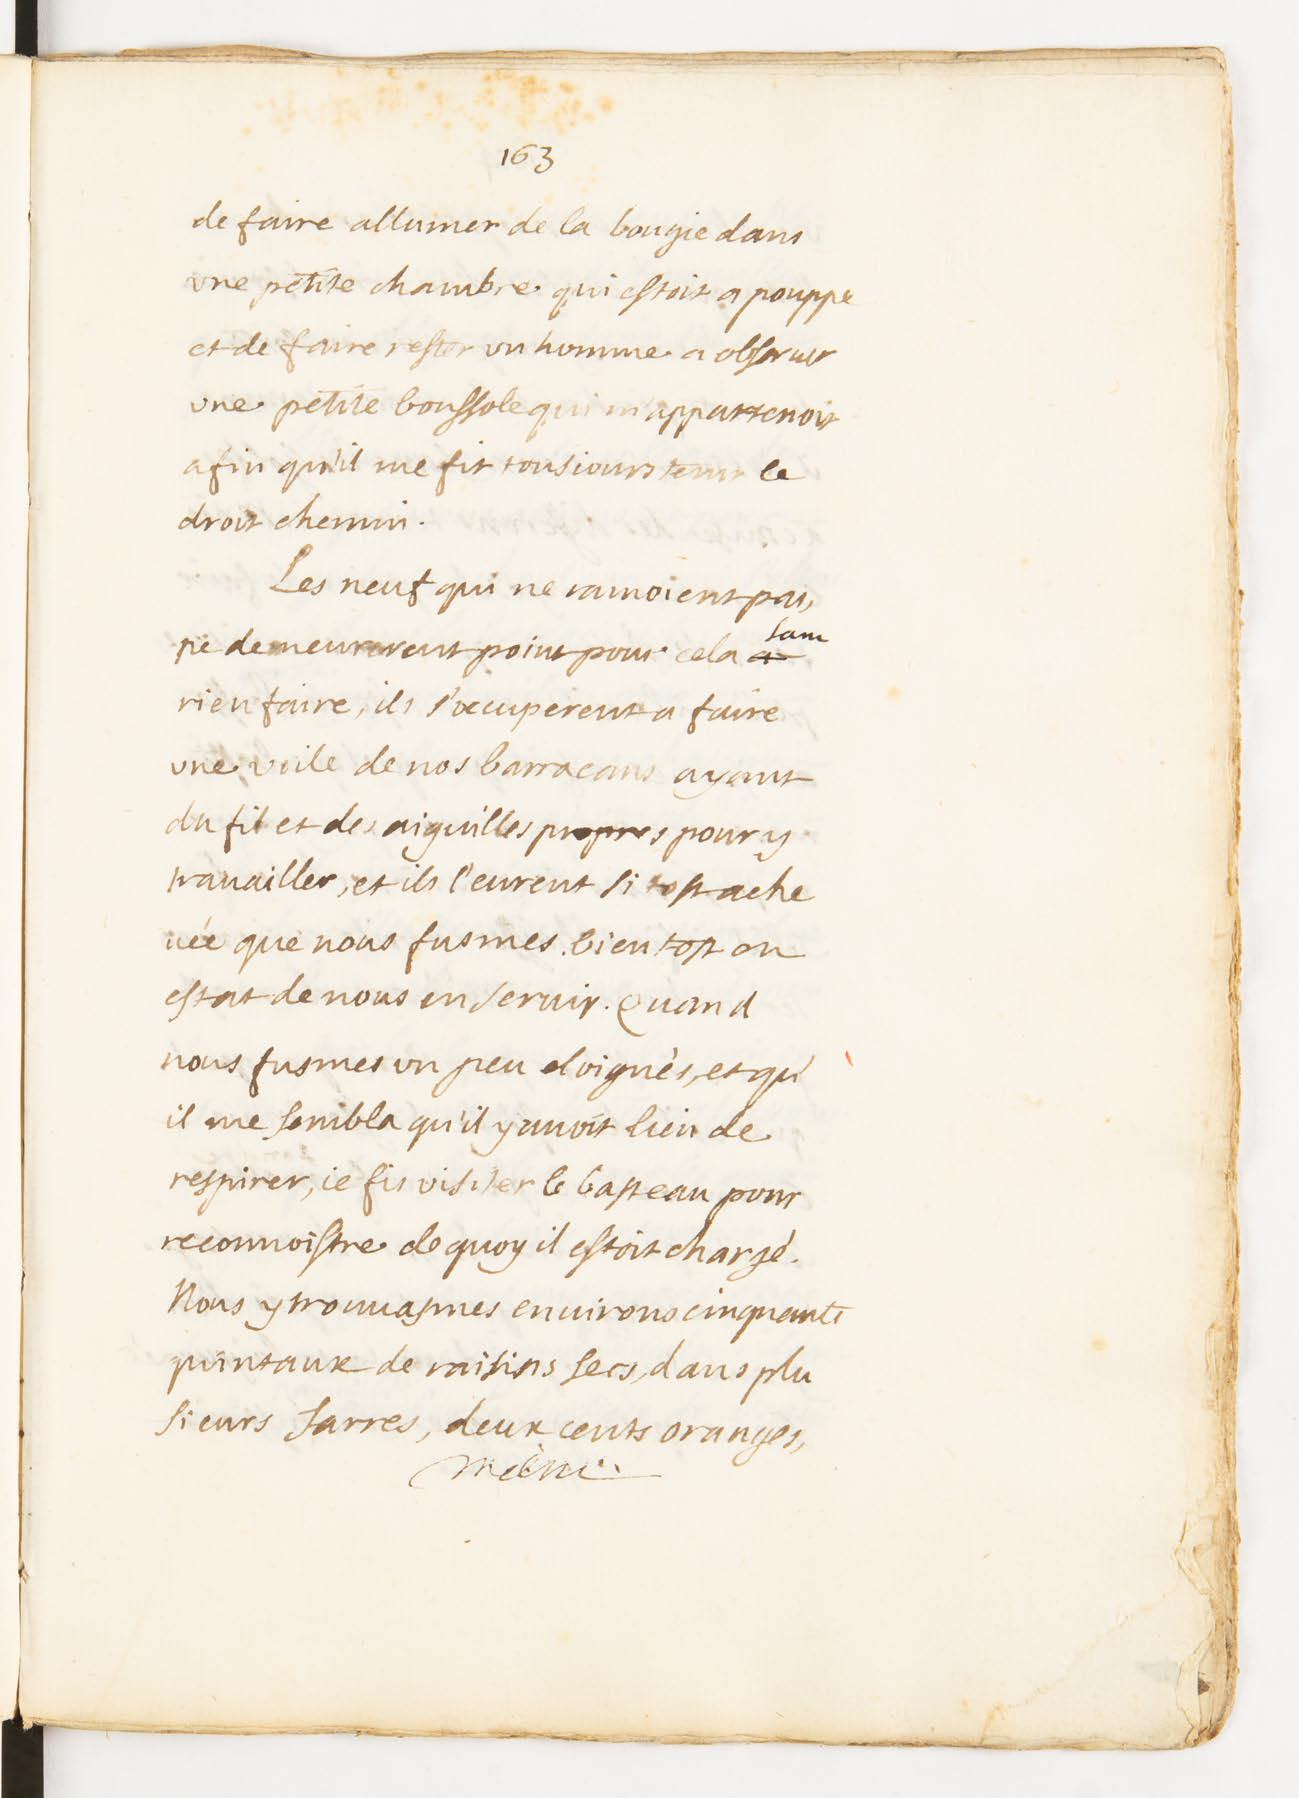 163
de faire allumer de la bougie dans
vne petite chambre qui estoit a pouppe
et de faire rester vn homme a obseruer
vne petite boussole qui m'appartenoit
afin qu'il me fit tousiours tenir le
droit chemin.
Les neuf qui ne ramoient pas,
ne demeurerent point pour cela a sans
rien faire, ils s'occuperent a faire
vne voile de nos barracans ayant
du fil et des aiguilles propres pour y
trauailler, et ils l'eurent si tost ache
uée que nous fusmes bien tost en
estat de nous en seruir. Quand
nous fusmes vn peu eloignés, et qu'
il me sembla qu'il y auoit lieu de
respirer, ie fis visiter le basteau pour
reconnoistre de quoy il estoit chargé.
Nous y trouuasmes enuirons cinquante
quintaux de raisins secs, dans plu
sieurs Jarres, deux cents oranges,